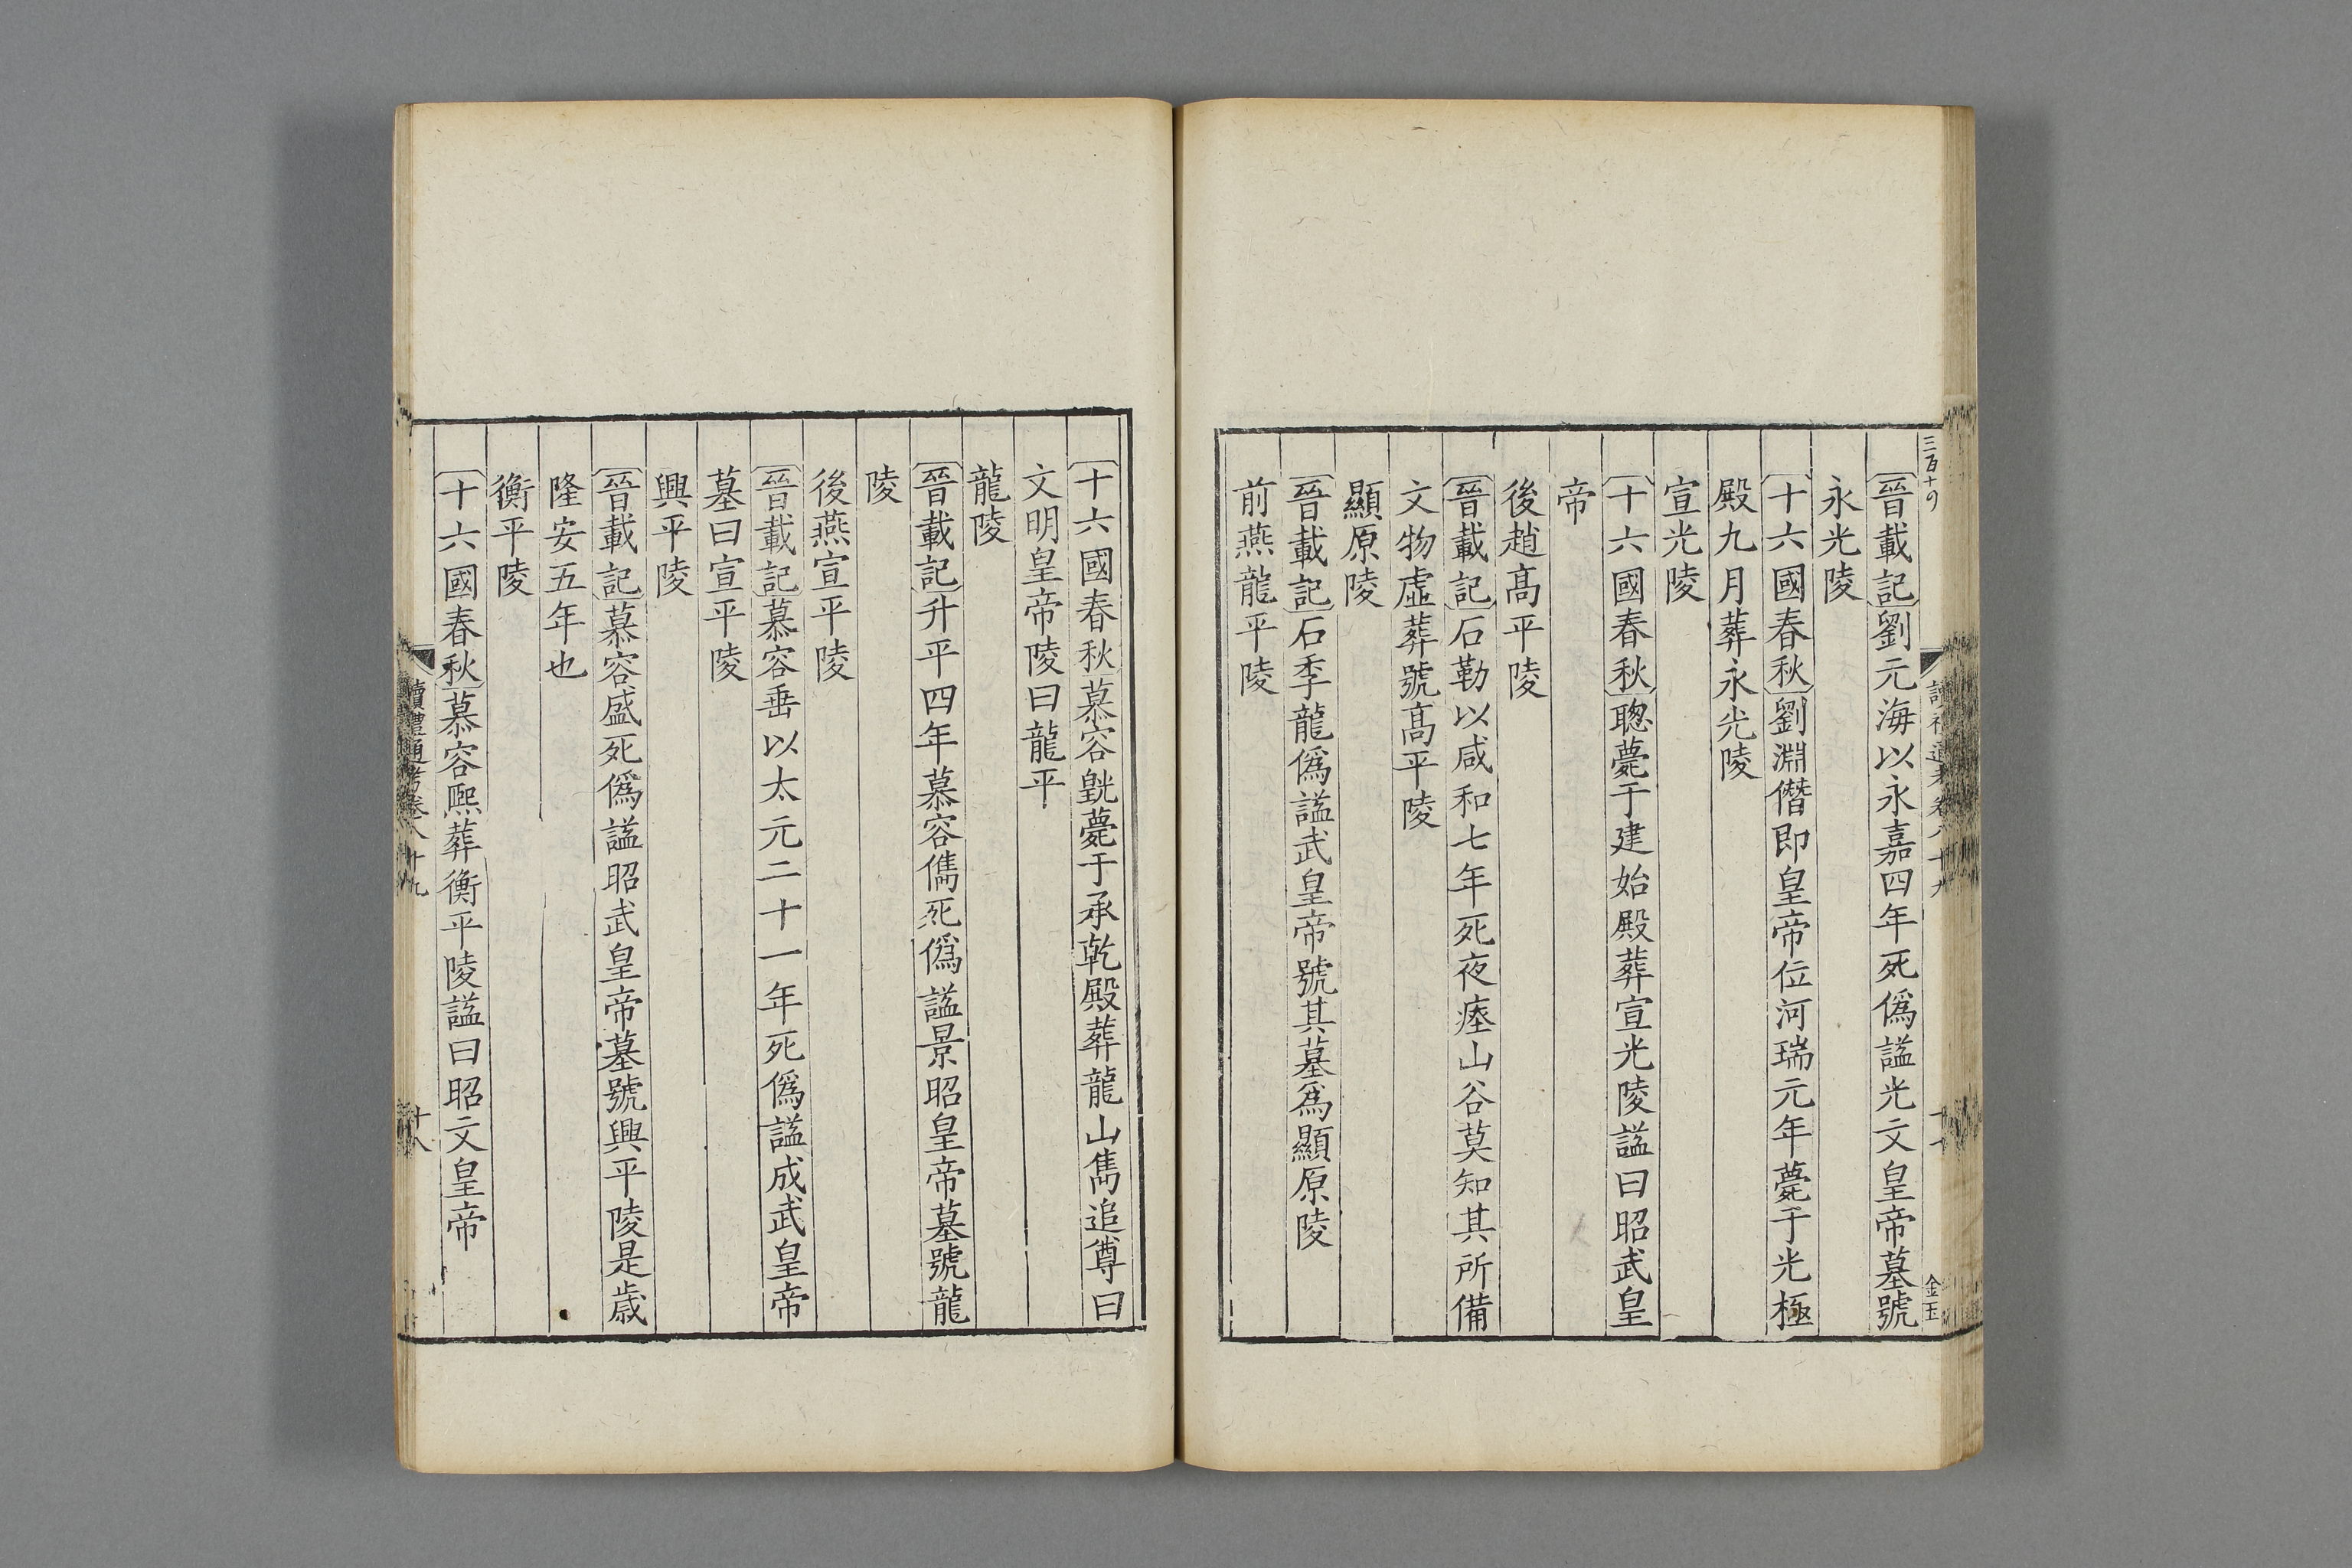 三百十八
〔晉載記〕劉元海以永嘉四年死僞諡光文皇帝墓號
永光陵
〔十六國春秋〕劉淵僭即皇帝位河瑞元年薨于光極
殿九月葬永光陵
宣光陵
〔十六國春秋〕聰薨于建始殿葬宣光陵諡曰昭武皇
帝
後趙髙平陵
〔晉載記〕石勒以咸和七年死夜瘞山谷莫知其所備
文物虛葬號髙平陵
顯原陵
〔晉載記〕石季龍僞諡武皇帝號其墓爲顯原陵
前燕龍平陵
金玉
〔十六國春秋〕慕容皝薨于承乾殿葬龍山雋追尊曰
文明皇帝陵曰龍平
龍陵
〔晉載記〕升平四年慕容儁死僞諡景昭皇帝墓號龍
陵
後燕宣平陵
〔晉載記〕慕容垂以太元二十一年死僞諡成武皇帝
墓曰宣平陵
興平陵
〔晉載記〕慕容盛死僞諡昭武皇帝墓號興平陵是歲
隆安五年也
衡平陵
〔十六國春秋〕慕容熙葬衡平陵諡曰昭文皇帝
讀禮通考卷八十九
十八